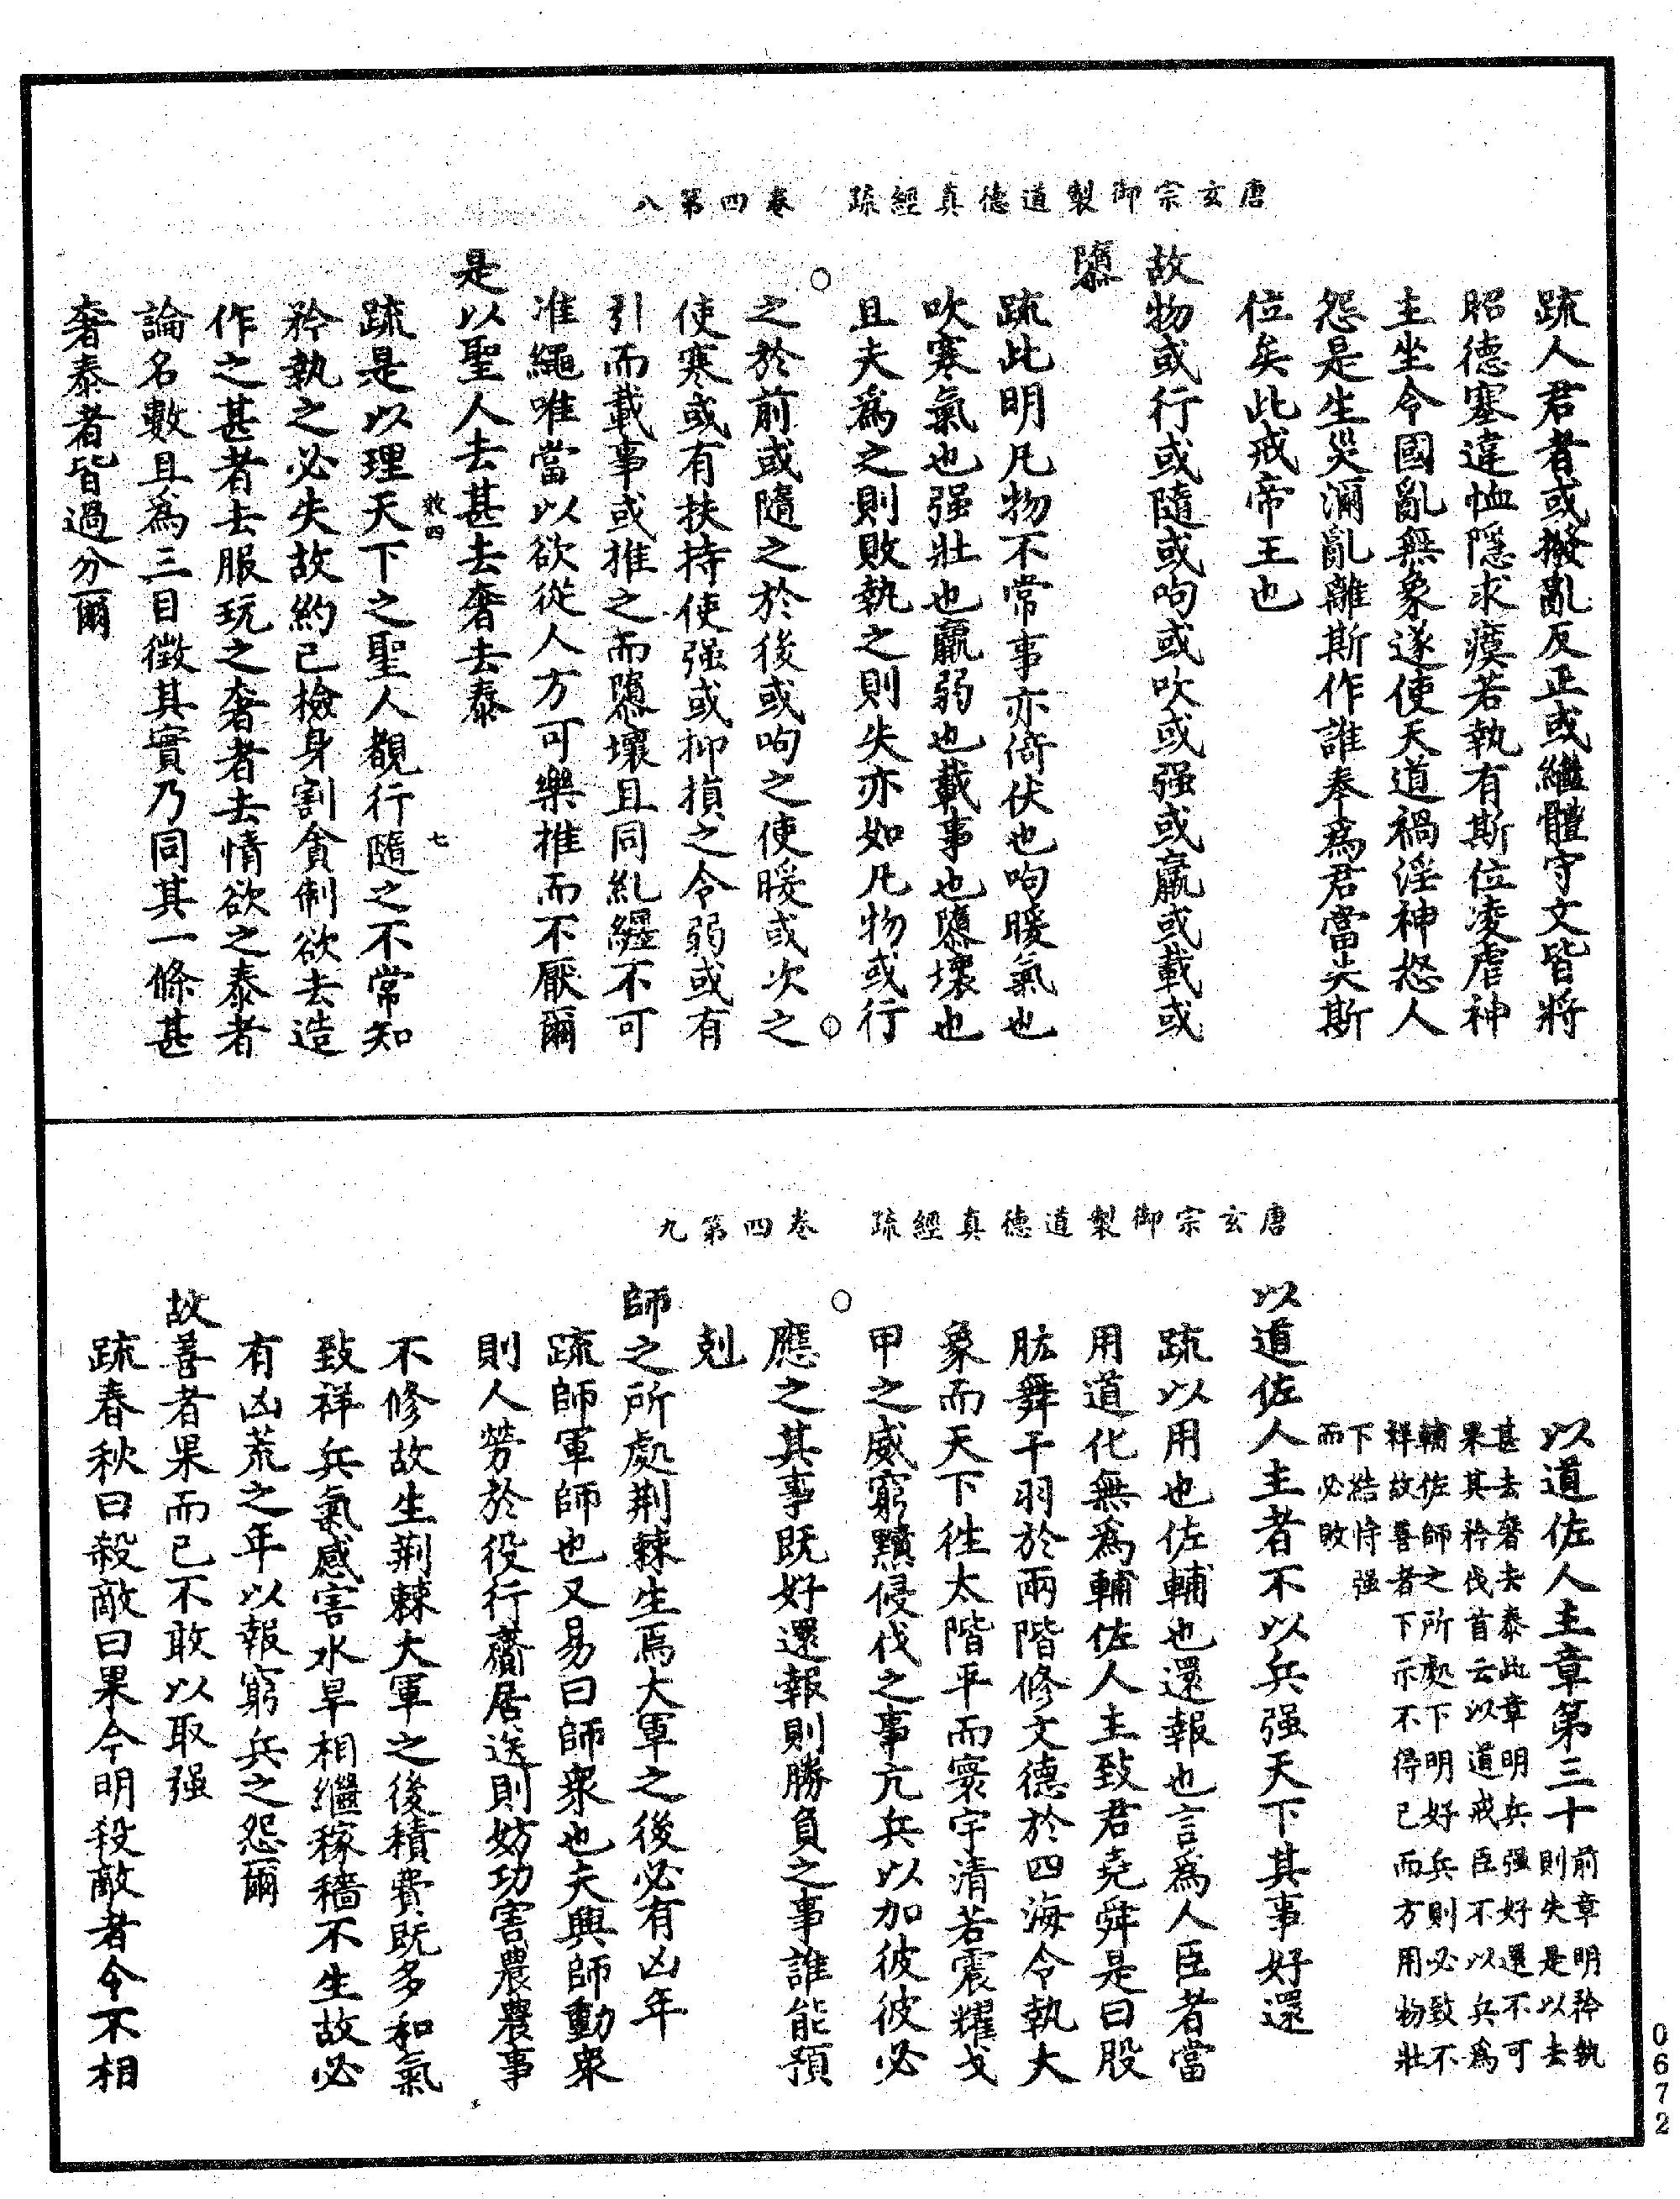 唐玄宗御製道德真經疏　卷四第八
疏人君者或撥亂反正或繼體守文皆將
昭德塞違恤隱求瘼若執有斯位凌虐神
主坐令國亂無象遂使天道禍淫神怒人
怨是生災瀰亂離斯作誰奉為君當失斯
位矣此戒帝王也
故物或行或隨或呴或吹或强或羸或載或
隳
疏此明凡物不常事亦倚伏也呴暖氣也
吹寒氣也强壯也羸弱也載事也隳壞也
且夫為之則敗執之則失亦如凡物或行
之於前或隨之於後或呴之使暖或吹之
使寒或有扶持使强或抑損之令弱或有
引而載事或推之而隳壞且同糺纆不可
准繩唯當以欲從人方可樂推而不厭爾
是以聖人去甚去奢去泰
效四　七
疏是以理天下之聖人覩行隨之不常知
矜執之必失故約己檢身割貪制欲去造
作之甚者去服玩之奢者去情欲之泰者
論名數且為三目徵其實乃同其一條甚
奢泰者皆過分爾
唐玄宗御製道德真經疏　卷四第九
以道佐人主章第三十
前章明矜執
則失是以去
甚去奢去泰此章明兵强好還不可
果其矜伐首云以道戒臣不以兵為
輔佐師之所處下明好兵則必致不
祥故善者下示不得已而方用物壯
下結恃强
而必敗
以道佐人主者不以兵强天下其事好還
疏以用也佐輔也還報也言為人臣者當
用道化無為輔佐人主致君堯舜是曰股
肱舞干羽於兩階修文德於四海令執大
象而天下往太階平而寰宇清若震耀戈
甲之威窮黷侵伐之事亢兵以加彼彼必
應之其事既好還報則勝負之事誰能預
剋
師之所處荆棘生焉大軍之後必有凶年
疏師軍師也又易曰師衆也夫興師動衆
則人勞於役行齎居送則妨功害農農事
不修故生荆棘大軍之後積費既多和氣
致祥兵氣感害水旱相繼稼穡不生故必
有凶荒之年以報窮兵之怨爾
故善者果而已不敢以取强
疏春秋曰殺敵曰果今明殺敵者令不相
0672